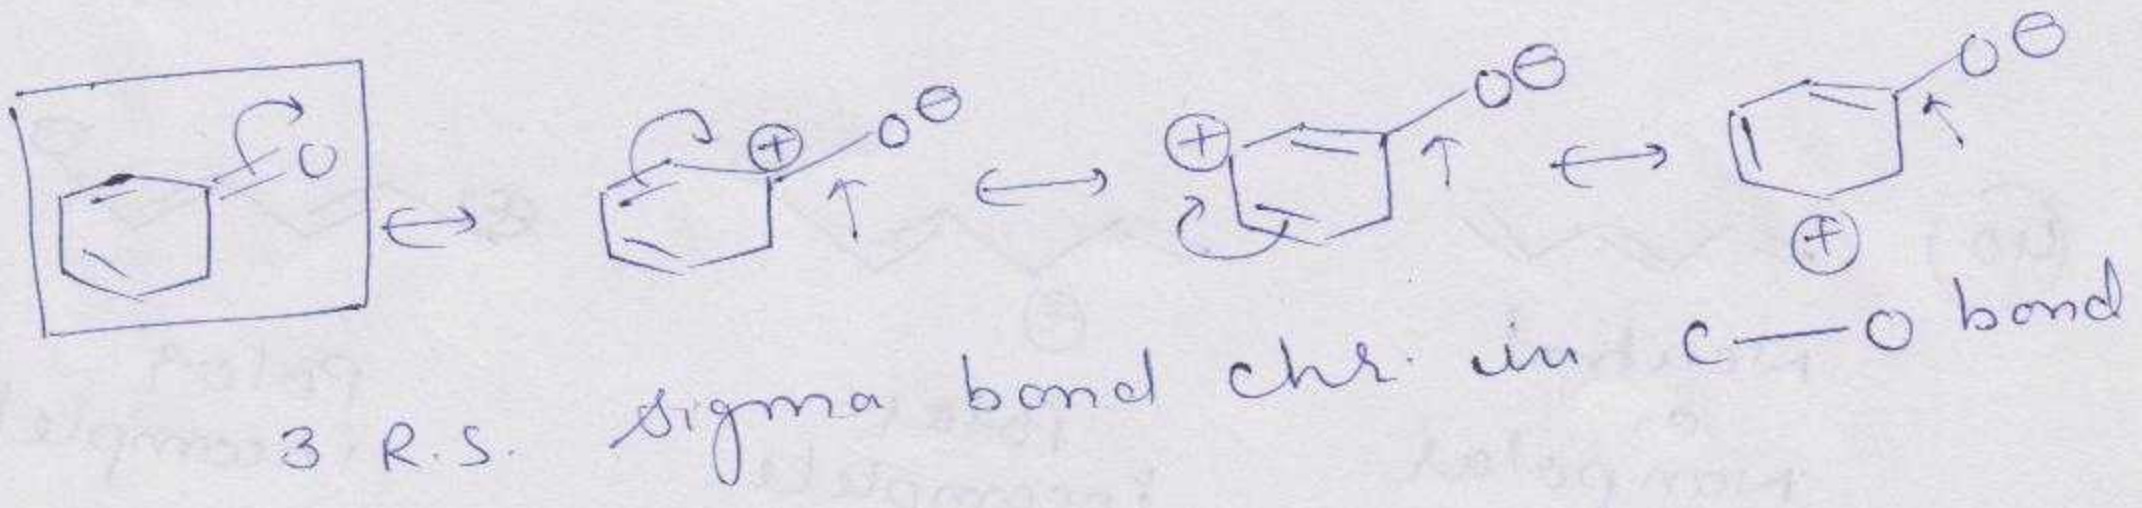 O ⊕ O⊖ ⊕ O⊖ O⊖ ⊕
3 R.S. sigma bond chr. in C—O bond